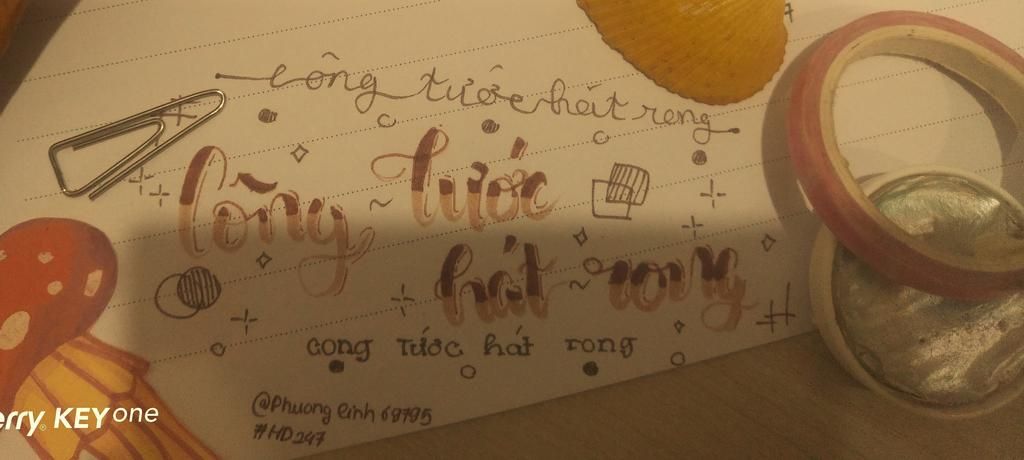 công tước hát rong
Công ~ tước
hát ~ rong
cong Tước hát rong
@Phuong linh 69795
#HD247
erry KEYone